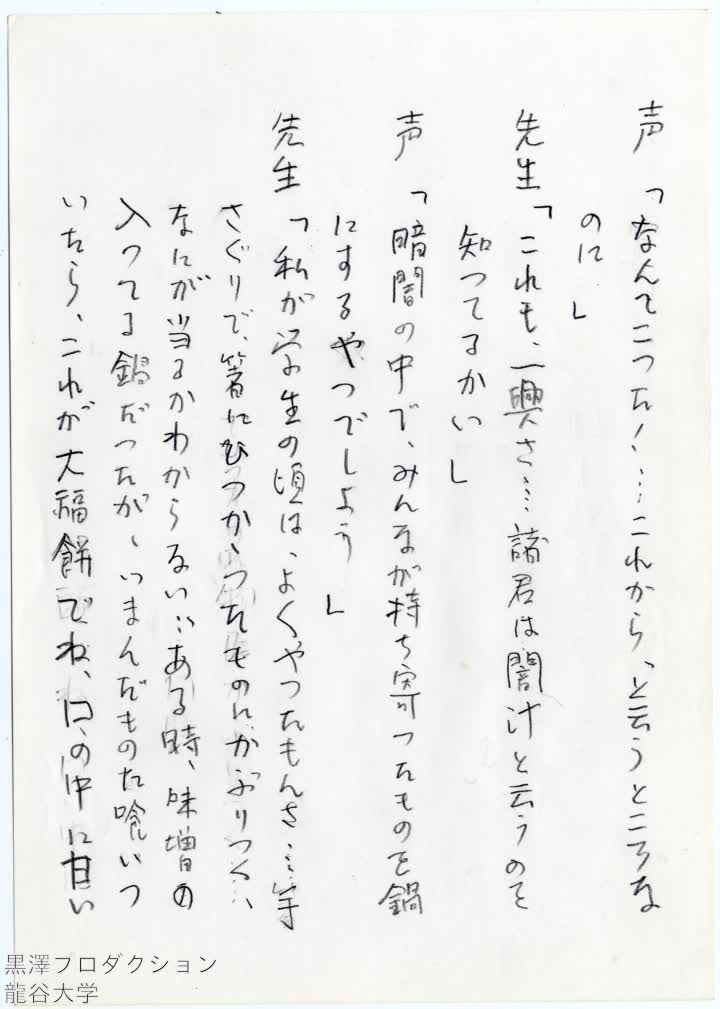 声「なんてこつた!…これから、と云うところな
のに」
先生「これも、一興さ…諸君は闇汁と云うのを
知つてるかい」
声「暗闇の中で、みんなが持ち寄つたものを鍋
にするやつでしよう」
先生「私が学生の頃は、よくやつたもんさ…箸
さぐりで、箸にひつかゝつたものにかぶりつく、
なにが当るかわからない…ある時、味増の
入つてる鍋だつたが、いまんだものた喰いつ
いたら、これが大福餅でね、口の中に甘い
黒澤プロダクション
龍谷大学